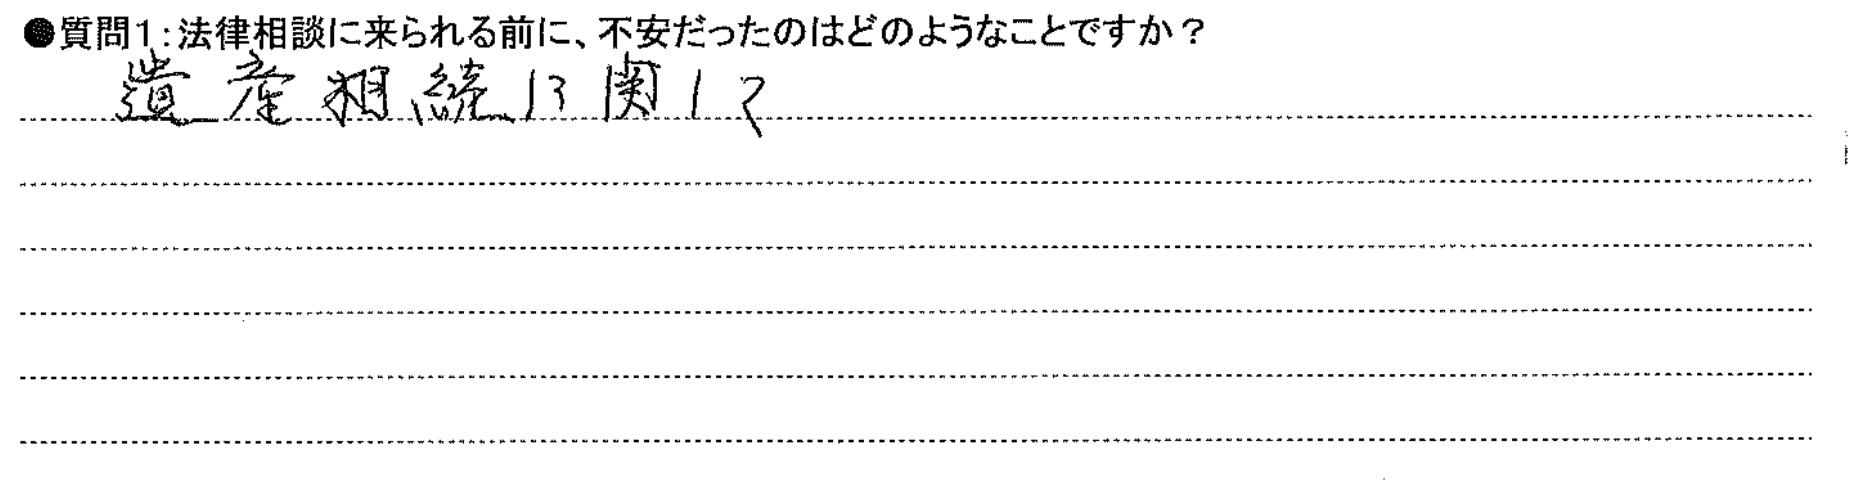 ●質問1:法律相談に来られる前に、不安だったのはどのようなことですか?
遺産相続に関して